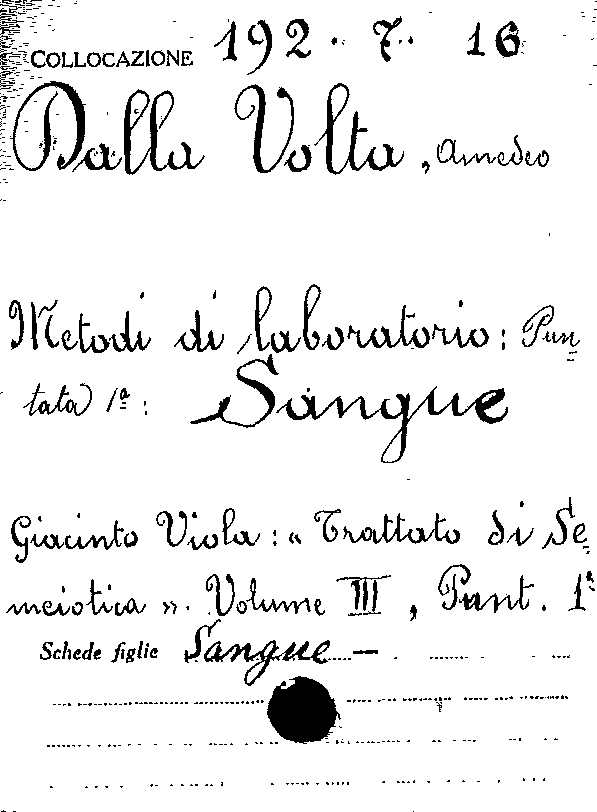 COLLOCAZIONE 192. 7. 16
Dalla Volta, Amedeo
Metodi di laboratorio: Pun=
tata 1ª: Sangue
Giacinto Viola: « Trattato di Se=
meiotica ». Volume III, Punt. 1ª
Schede figlie Sangue —